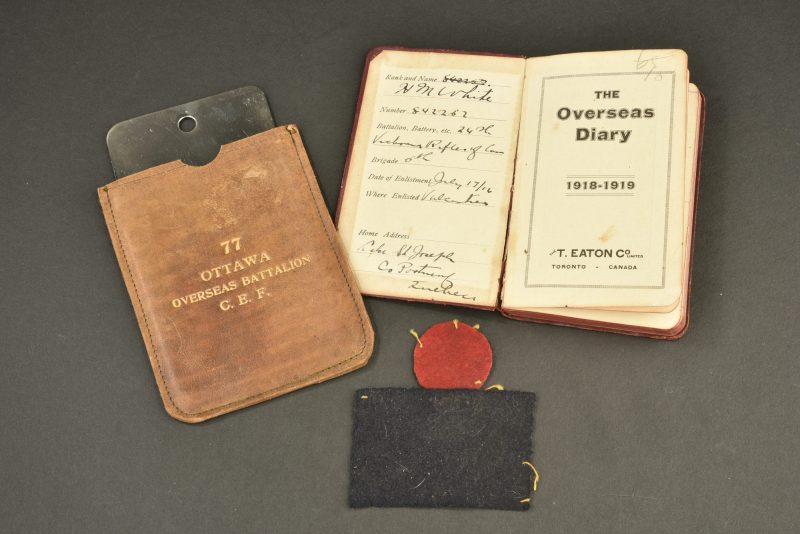 77
OTTAWA
OVERSEAS BATTALION
C. E. F.
Rank and Name 842262
H M White
Number 842262
Battalion, Battery, etc. 24th
Victoria Rifles of Can
Brigade 5th
Date of Enlistment July 17/16
Where Enlisted Valcartier
Home Address
St Joseph
Co
Quebec
THE
Overseas
Diary
1918-1919
T. EATON Co. LIMITED
TORONTO - CANADA